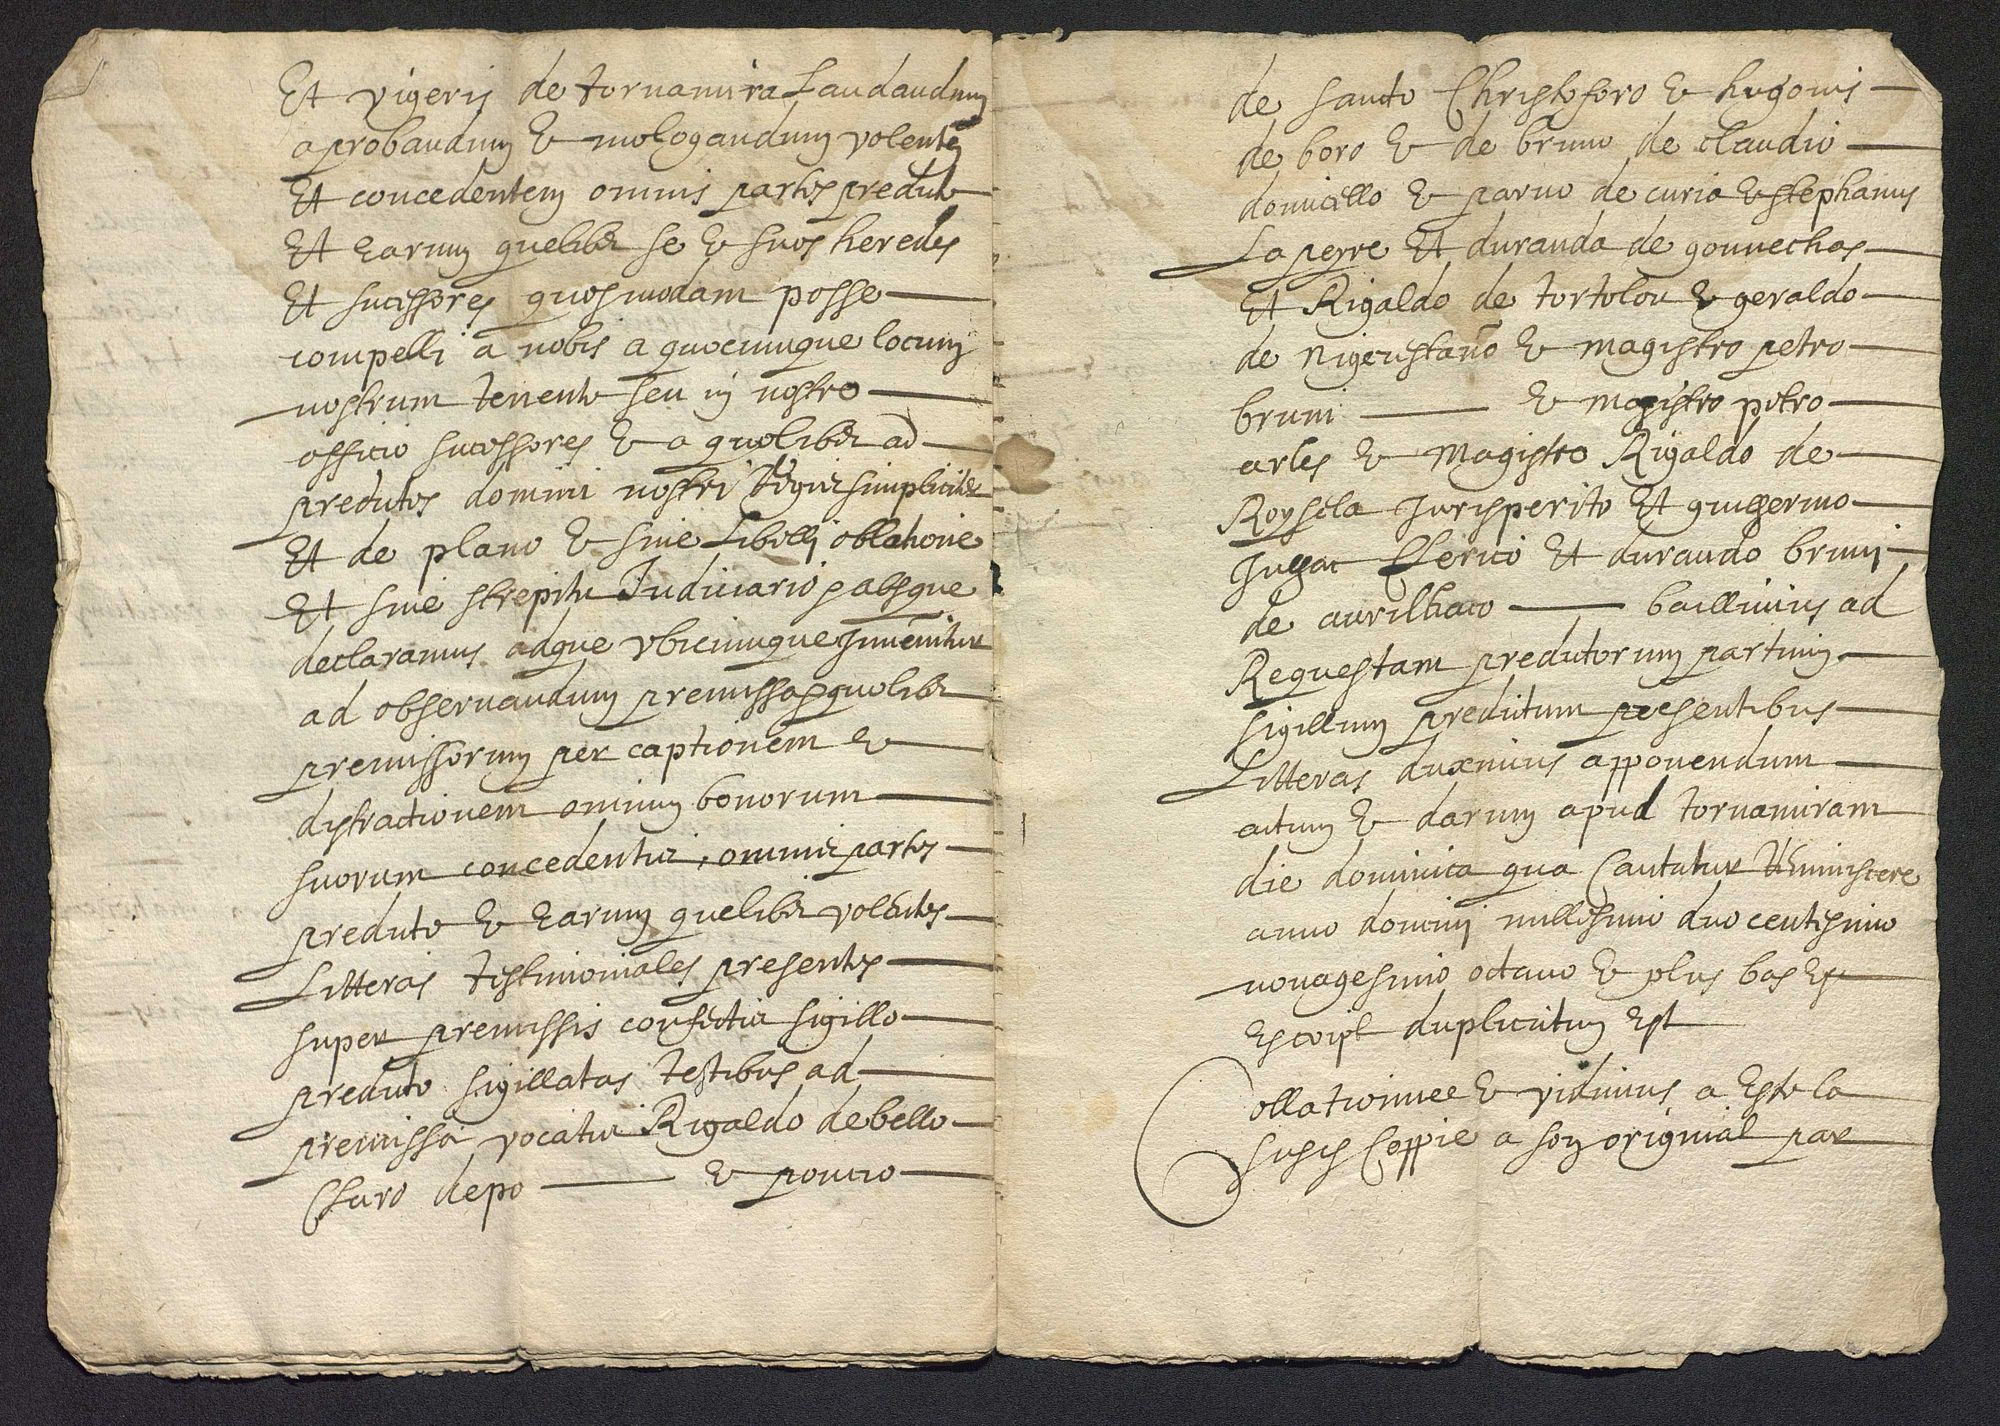 Et vigeris de tornamira Laudandum
aprobandum & mologandum volentem
Et concedentem omnis partes predute
Et Earum quelibet se & suos heredes
Et sucessores quosmodam posse
compelli a nobis a quocumque locum
nostrum tenente seu in nostro
officio sucessores & a quolibet ad
predutos domini nostri Regis simpliciter
Et de plano & sine Libelli oblatione
Et sine strepitu Judiciario absque
declaramus adque ubicumque Invenitur
ad observandum premissa quolibet
premissorum per captionem &
distractionem omnium bonorum
suorum concedentur, omnis partes
predute & Earum quelibet volentes
Litteras testimoniales presentes
super premissis confectis sigillo
preduto sigillatas testibus ad
premissa vocatis Rigaldo debello
Claro depo & poncio
de sancto Christoforo & hugonis
de boro & de bruno de claudio
domicello & paruo de curia & stephanus
La peyre Et duranda de gonnechas
Et Rigaldo de tortolou & geraldo
de nigeristano & magistro petro
bruni & magistro petro
arles & magistro Rigaldo de
Roysela Jurisperito Et guillermo
Clerici Et durando bruni
de aurilhaco baillivius ad
Requestam predutorum partium
sigillum predutum presentibus
Litteras duximus apponendum
actum & darum apud tornamiram
die dominica qua Cantatur Reminiscere
anno domini millesimo duocentesimo
nonagesimo octavo & plus bas Est
Escript duplicitum Est
Collationnee & vidimus a Este la
susis Coppie a son original par